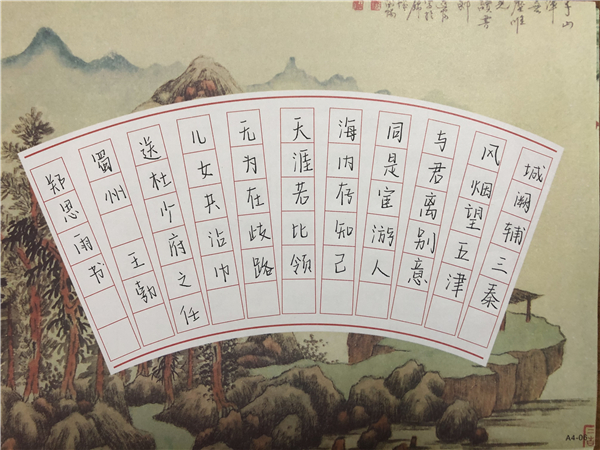 城阙辅三秦
风烟望五津
与君离别意
同是宦游人
海内存知己
天涯若比领
无为在歧路
儿女共沾巾
送杜少府之任
蜀州 王勃
郑思雨书
A4-06